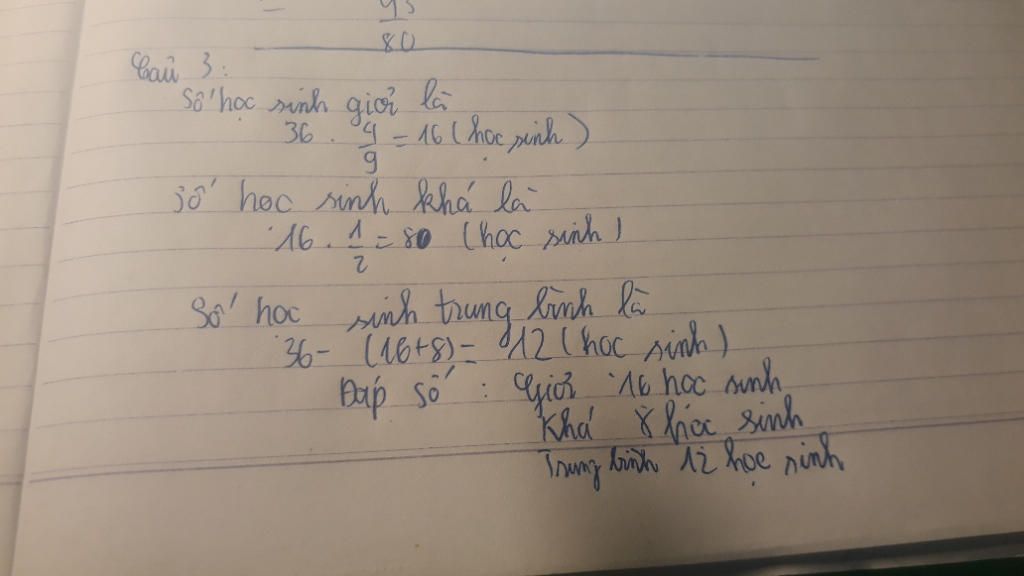 = 93
80
Câu 3:
Số học sinh giỏi là
36 . 4/9 = 16 (học sinh)
số học sinh khá là
16 . 1/2 = 80 (học sinh)
Số học sinh trung bình là
36 - (16+8) = 12 (học sinh)
Đáp số : Giỏi 16 học sinh
Khá 8 học sinh
Trung bình 12 học sinh